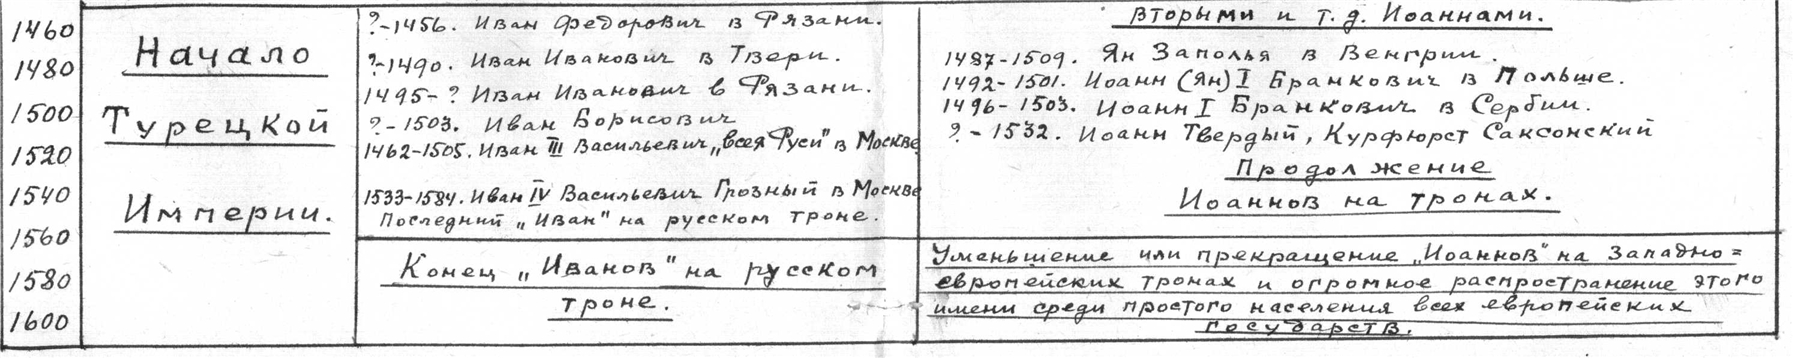 1460
1480
1500
1520
1540
1560
1580
1600
Начало
Турецкой
Империи.
?-1456. Иван Федорович в Рязани.
?-1490. Иван Иванович в Твери.
1495-? Иван Иванович в Рязани.
?-1503. Иван Борисович
1462-1505. Иван III Васильевич „всея Руси" в Москве
1533-1584. Иван IV Васильевич Грозный в Москве
Последний „Иван" на русском троне.
Конец „Иванов" на русском
троне.
вторыми и т.д. Иоаннами.
1487-1509. Ян Заполья в Венгрии.
1492-1501. Иоанн (Ян) I Бранкович в Польше.
1496-1503. Иоанн I Бранкович в Сербии.
?-1532. Иоанн Твердый, Курфюрст Саксонский
Продолжение
Иоаннов на тронах.
Уменьшение или прекращение „Иоаннов" на Западно=
европейских тронах и огромное распространение этого
имени среди простого населения всех европейских
государств.